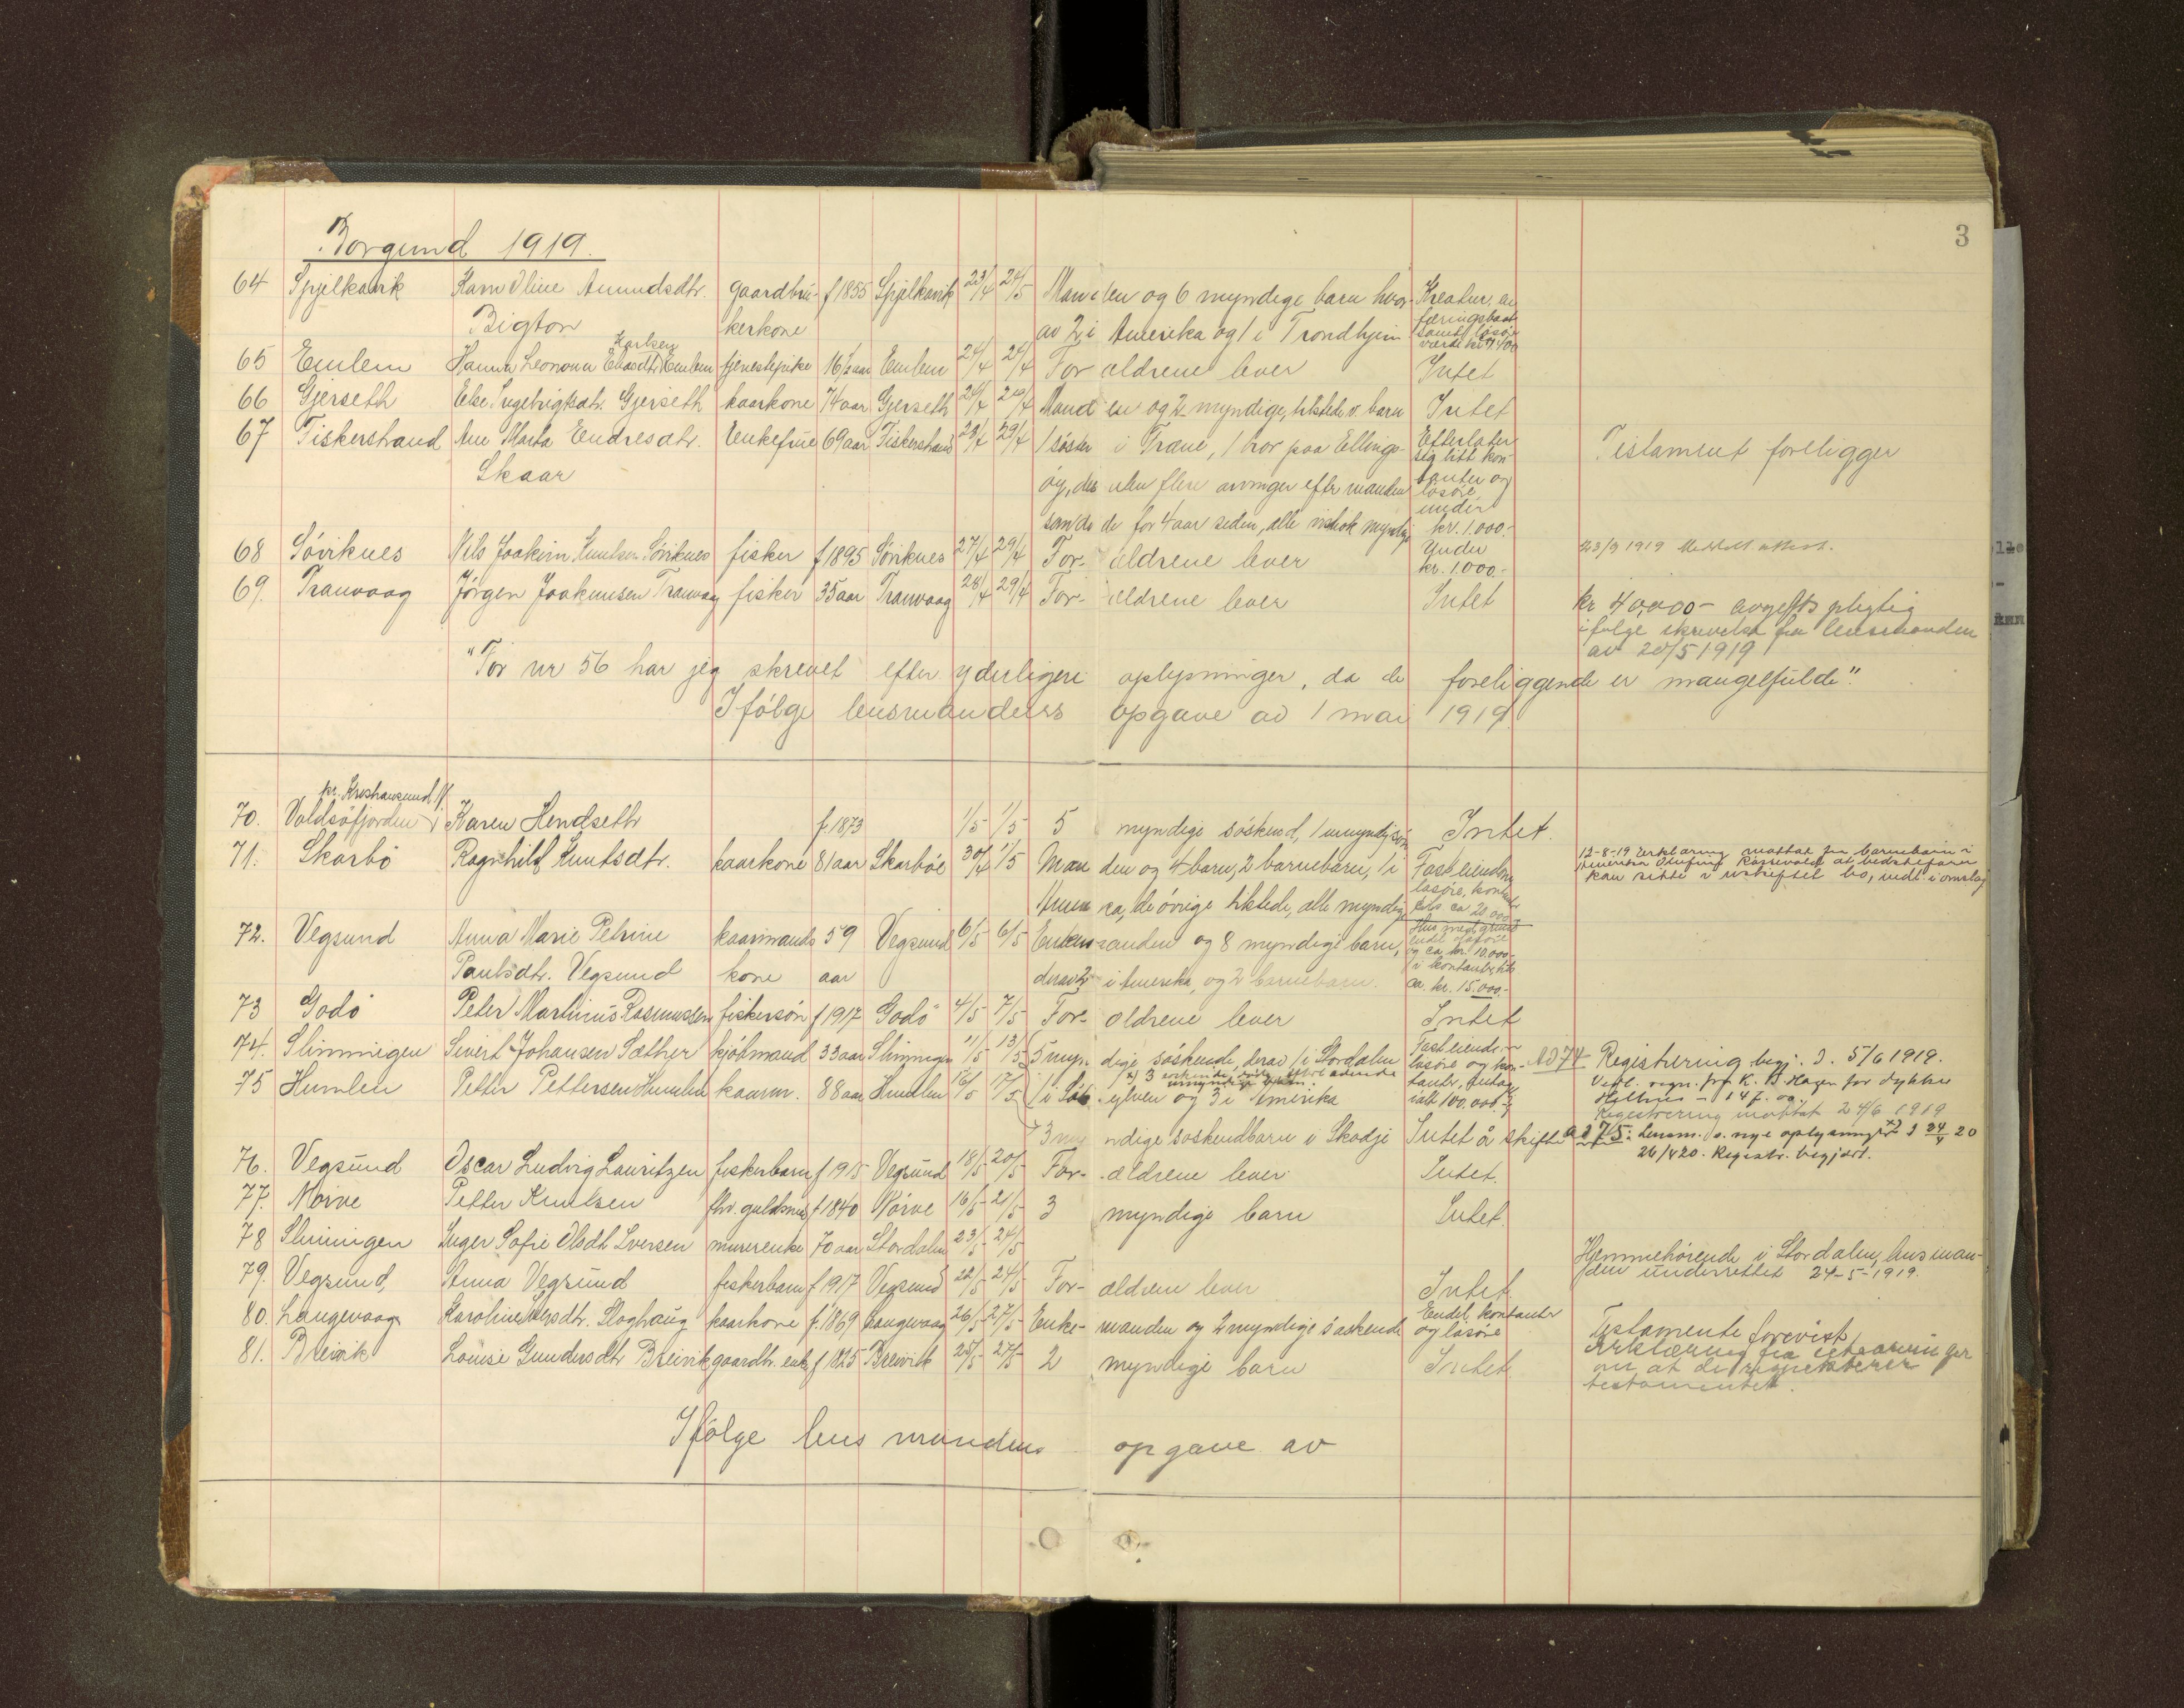 3
Borgund 1919.
64 Spjelkavik Karn Oline Amundsdtr. gaardbru- f 1855 Spjelkavik 23/4 24/5 Manden og 6 myndige barn hvor- Kreatur, en
Bigton kerkone av 2 i Amerika og 1 i Trondhjem færingsbaat
samt løsøre
værdi kr. 1.400
Karlsen
65 Emlem Hanna Leonora Emlem tjenestepike 16 1/2 aar Emlem 24/4 24/4 Forældrene lever Intet
66 Gjerseth Else Ingebrigtsdtr. Gjerseth kaarkone 74 aar Gjerseth 24/4 Mand og 2 myndige, tilstede v. barn Intet
67 Fiskerstrand Ane Marta Endresdtr. Enkefrue 69 aar Fiskerstrand 29/4 1 søster i 1 bror paa Ellings- Efterlater Testament foreligger
Skaar øy, des uten flere arvinger efter manden sig litt kon-
tanter og
løsøre
under
som døde for 4 aar siden, alle myndige kr. 1.000.-
68 Søviknes Nils Joakim Knutsen Søviknes fisker f 1895 Søviknes 27/4 29/4 For- ældrene lever Under 23/9 1919 Meddelt attest.
kr. 1.000.-
69. Tranvaag Jørgen Joakimsen Tranvaag fisker 35 aar Tranvaag 28/4 29/4 For- ældrene lever Intet kr 40,000- avgiftspligtig
ifølge skrivelse fra lensmanden
av 20/5 1919
"For nr 56 har jeg skrevet efter yderligere oplysninger, da de foreliggende er mangelfulde."
Ifølge lensmandens opgave av 1 mai 1919
pr. Kristiansund N.
70. Valdsøfjorden Karen Hendseth f. 1873 1/5 1/5 5 myndige søskend, 1 umyndig søn Intet.
71. Skarbø Ragnhild Knutsdtr. kaarkone 81 aar Skarbøe 30/4 1/5 Manden og 4 barn, 2 barnebarn, 1 i Fast eiendom 12-8-19 Erklæring mottat fra barnebarn i
Amerika at bedstefaren
kan sitte i uskiftet bo, vedl. i omslag
Amerika, de øvrige tilstede, alle myndige løsøre, kontanter ca 20.000.-
72. Vegsund Anna Marie Petrine kaarmands 59 Vegsund 6/5 6/5 Enkemanden og 8 myndige barn, Hus med grund
endel løsøre
og ca. kr. 10.000-
Paulsdtr. Vegsund kone aar derav 2 i Amerika, og 2 barnebarn. i kontanter, tils.
ca. kr. 15.000.-
73 Godø Peter Martinus Rasmussen fiskersøn f 1917 Godø 4/5 7/5 For- ældrene lever Intet
74. Slinningen Sivert Johansen Sæther kjøbmand 33 aar Slinningen 11/5 13/5 5 myndige søskende, derav 1 i Stordalen Fast eiendom Ad 74 Registrering begj. d. 5/6 1919.
løsøre og kon-
75 Humlen Petter Pettersen Humlen kaarm. 88 aar Humlen 16/5 17/5 1 i Sylven og 3 i Amerika tanter, antag. Vedl. regn. fra K. B. Hagen for dykker
ialt 100.000.-
Registrering mottat 24/6 1919
3 myndige søskendbarn i Skodje Intet å skifte ad 75: Lensm. nye oplysninger d 24/4 20
26/4 20. Registr. begjært.
76. Vegsund Oscar Ludvig Lauritzen fiskerbarn f 1915 Vegsund 18/5 20/5 For- ældrene lever Intet.
77. Nørve Petter Knutsen fhv. guldsmed f 1840 Nørve 16/5 21/5 3 myndige barn Intet.
78 Slinningen Inger Sofie Olsdt Iversen murerenke 70 aar Stordalen 23/5 24/5 Hjemmehørende i Stordalen, lensman-
den underrettet 24-5-1919.
79. Vegsund, Anna Vegsund fiskerbarn f 1917 Vegsund 22/5 24/5 For- ældrene lever Intet
80. Langevaag Karoline Iversdtr. Sloghaug kaarkone f. 1869 Langevaag 26/5 27/5 Enke- manden og 2 myndige søskende Endel kontanter Testamente forevist
og løsøre Erklæring fra arvinger
81. Breivik Louise Gundersdtr Breivik gaardbr. enke f 1825 Breivik 25/5 27/5 2 myndige barn Intet om at de respekterer
testamentet.
Ifølge lensmandens opgave av